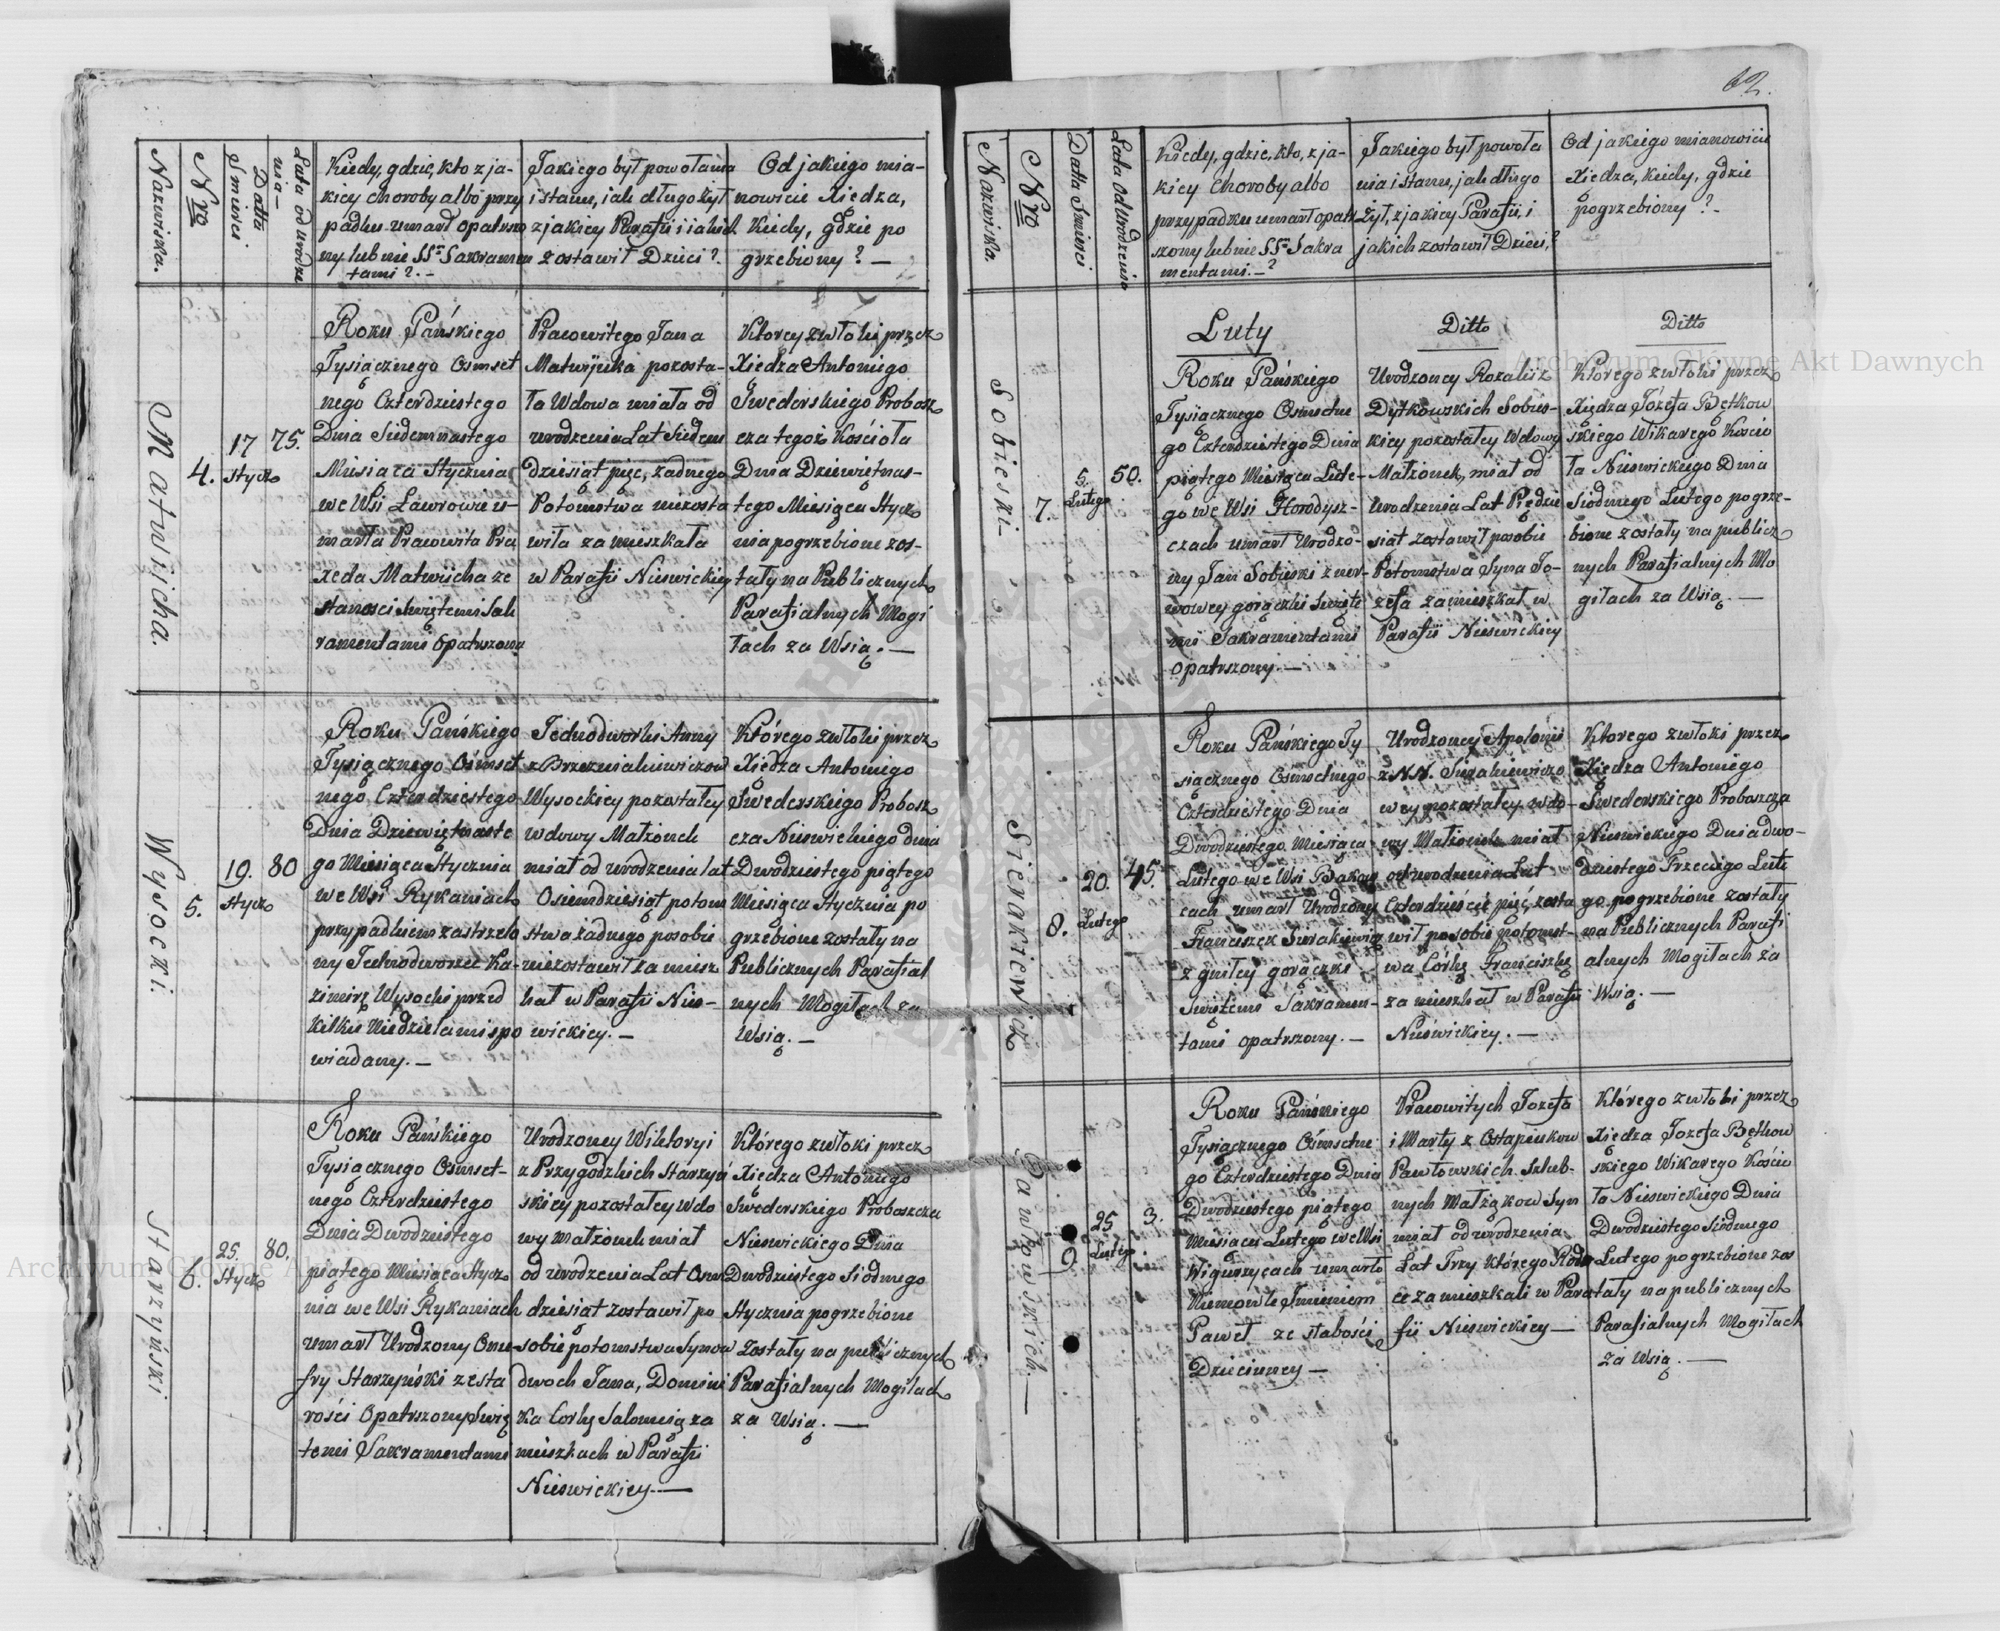 62.
Nazwiska.
Nro
Datta Śmierci
Lata od urodze
nia —
Kiedy, gdzie, kto z ja-
kiey choroby albo przy
padku umarł opatrzo
ny lub nie SS. Sakramen
tami? —
Jakiego był powołania
i stanu, iak długo żył
z jakiey Parafii i iakich
zostawił Dzieci?
Od jakiego mia-
nowicie Xiędza,
Kiedy, gdzie po
grzebiony? —
Matwijicha.
4.
17
Stycz
75.
Roku Pańskiego
Tysiącznego Osmset
nego Czterdziestego
Dnia Siedemnastego
Miesiąca Stycznia
we Wsi Ławrowie u-
marła Pracowita Pra
xeda Matwiicha ze
starosci Swiętemi Sak
ramentami Opatrzona
Pracowitego Jana
Matwijuka pozosta-
ła Wdowa miała od
urodzenia Lat Siedem
dziesiąt pięc, żadnego
Potomstwa niezosta
wiła zamieszkała
w Parafii Nieswickiey
Ktorey zwłoki przez
Xiedza Antoniego
Swederskiego Probosz
cza tegoż Kościoła
Dnia Dziewiętnas-
tego Miesiąca Stycz
nia pogrzebione zos-
tały na Publicznych
Parafialnych Mogi
łach za Wsią. —
Wysocki.
5.
19.
Stycz
80
Roku Pańskiego
Tysiącznego Ośmset
nego Czterdziestego
Dnia Dziewiętnaste
go Miesiąca Stycznia
we Wsi Rykaniach
przypadkiem zastrzelo
ny Jednodworzec Ka-
zimirz Wysocki przed
Kilku Niedzielami spo
wiadany. —
Jednodworki Anny
z Brzezmakiewiczow
Wysockiey pozostałey
wdowy Małżonek
miał od urodzenia lat
Osiemdziesiąt potom
stwa żadnego po sobie
niezostawił zamiesz
kał w Parafii Nies-
wickiey. —
Którego zwłoki przez
Xiędza Antoniego
Swederskiego Probosz
cza Nieswickiego dnia
Dwodziestego piątego
Miesiąca Stycznia po
grzebione zostały na
Publicznych Parafial
nych Mogiłach za
Wsią. —
Starzyński
6.
25.
Stycz
80.
Roku Pańskiego
Tysiącznego Osmset-
nego Czterdziestego
Dnia Dwodziestego
piątego Miesiąca Stycz
nia we Wsi Rykaniach
umarł Urodzony Onu
fry Starzyński z sta
rości Opatrzony Swię
temi Sakramentami
Urodzoney Wiktoryi
z Przygodzkich Starzyń
skiey pozostałey Wdo
wy małżonek miał
od urodzenia Lat Osm
dziesiat zostawił po
sobie potomstwa Synow
dwoch Jana, Domini
ka Corkę Salomeią za
mieszkach w Parafii
Nieswickiey. —
Którego zwłoki przez
Xiedza Antoniego
Swederskiego Proboszcza
Nieswickiego Dnia
Dwodziestego Siodmego
Stycznia pogrzebione
zostały na publicznych
Parafialnych Mogiłach
za Wsią. —
Nazwiska.
Nro
Datta Śmierci
Lata od Urodzenia
Kiedy, gdzie, kto, z ja-
kiey choroby albo
przypadku umarł opatr
zony lub nie SS. Sakra
mentami. —?
Jakiego był powoła
nia i stanu, jak długo
żył, z jakiey Parafii, i
jakich zostawił Dzieci,?
Od jakiego mianowicie
Xiedza, kiedy, gdzie
pogrzebiony? —
Luty
Ditto
Ditto
Sobieski —
7.
5.
Lutego
50.
Roku Pańskiego
Tysiącznego Osmsetne
go Czterdziestego Dnia
piątego Miesiąca Lute-
go we Wsi Horodysz-
czach umarł Urodzo-
ny Jan Sobieski z ner-
wowey gorączki Święte
mi Sakramentami
Opatrzony. —
Urodzoney Rozalii z
Dytkowskich Sobies-
kiey pozostałey Wdowy
Małżonek, miał od
Urodzenia Lat Pięćdzie
siąt zostawił po sobie
Potomstwa Syna Jo-
zefa zamieszkał w
Parafii Nieswickiey
Ktorego zwłoki przez
Xiędza Józefa Bętkow
skiego Wikarego Koscio
ła Nieswickiego Dnia
Siódmego Lutego pogrze-
bione zostały na publicz
nych Parafialnych Mo
giłach za Wsią. —
Sierakiewicz
8.
20.
Lutego
45.
Roku Pańskiego Ty
siącznego Ośmsetnego
Czterdziestego Dnia
Dwodziestego Miesiąca
Lutego we Wsi Bakow
cach umarł Urodzony
Franciszek Sierakiewicz
z gniłey gorączki
Swiętemi Sakramen-
tami opatrzony. —
Urodzoney Apolonii
z NN. Sierakiewiczo
wey pozostałey wdo-
wy Małżonek miał
od urodzenia Lat
Czterdzieście pięć, zosta
wił po sobie potomst-
wa Córkę Franciszkę
zamieszkał w Parafii
Nieświckiey. —
Ktorego zwłoki przez
Xiedza Antoniego
Swederskiego Proboszcza
Nieswickiego Dnia dwo-
dziestego Trzeciego Lute
go pogrzebione zostały
na Publicznych Parafi
alnych Mogiłach za
Wsią. —
Pawłowskich. —
9.
25
Lutego
3.
Roku Pańskiego
Tysiącznego Ośmsetne
go Czterdziestego Dnia
Dwodziestego piątego
Miesiaca Lutego we Wsi
Wiguryczach umarło
Niemowle Imieniem
Paweł ze słabości
Dziecinney —
Pracowitych Jozefa
i Marty z Ostapiukow
Pawłowskich Szlub-
nych Małżąkow Syn
miał od urodzenia
Lat Trzy którego Rodzi
ce zamieszkali w Para
fii Nieswickiey —
Którego zwłoki przez
Xiedza Jozefa Bętkow
skiego Wikarego Kościo
ła Nieswickiego Dnia
Dwodziestego Siódmego
Lutego pogrzebione zos
tały na publicznych
Parafialnych Mogiłach
za Wsią. —
Archiwum Główne Akt Dawnych
Archiwum Główne Akt Dawnych